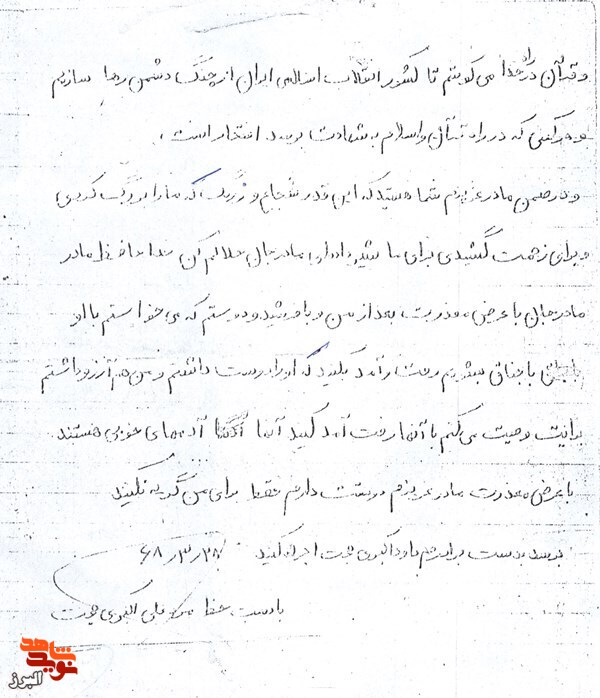 و قرآن در راه خدا می کوشیم تا کشور انقلاب اسلامی ایران از چنگ دشمن رها سازیم
و هر کسی که در راه قرآن و اسلام به شهادت برسد افتخار است.
و در ضمن مادر عزیزم شما هستید که این قدر شجاع و که ما را بزرگ کردی
و برای زحمت کشیدی برای ما شیر دادی مادر جان حلالم کن خدا حافظ مادر
مادر جان با عرض معذرت بعد از من و با که می خواستم با او
رفت و آمد بکنید که او را دوست داشتم و من هم آرزو داشتم
برایت وصیت می کنم با آنها رفت آمد کنید آنها آدمهای خوبی هستند
با عرض معذرت مادر عزیزم دوستت دارم فقط برای من گریه نکنید
برسد بدست برادرم داود اکبری اجرا کنید ۶۸/۳/۲۸
با دست خط علی اکبری
نوید شاهد
البرز